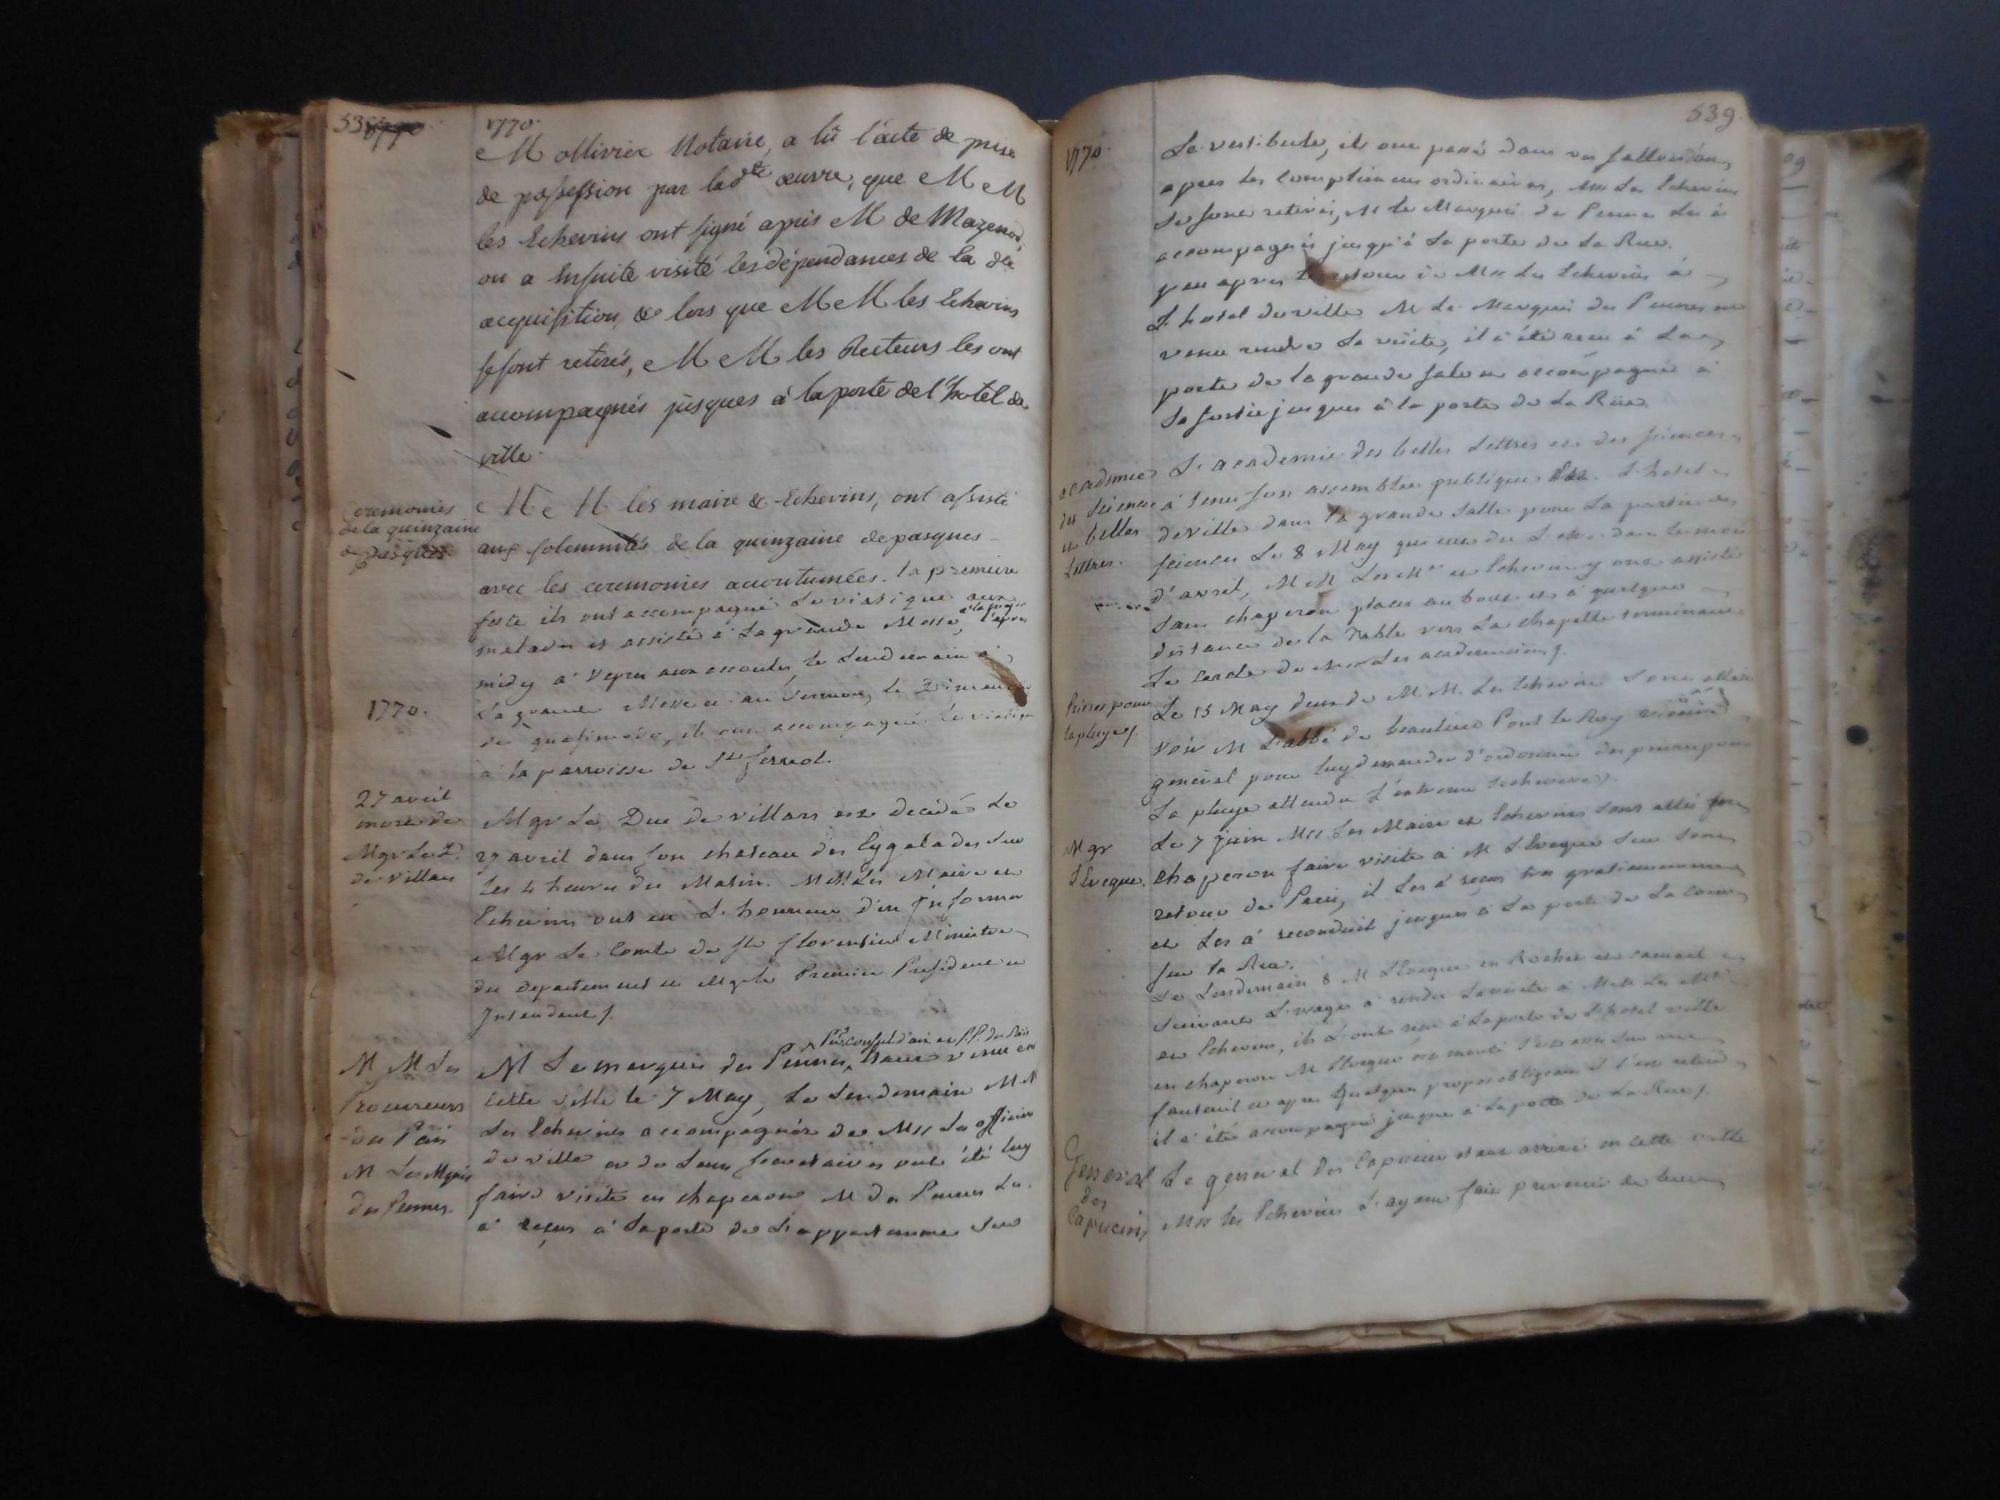 538
1770.
M ollivier Notaire, a lû l'acte de prise
de possession par lad.te œuvre, que M M
les Echevins ont signé après M de Mazenod,
on a ensuite visité les dépendances de la d.te
acquisition, & lors que M M les Echevins
se sont retirés, M M les Recteurs les ont
accompagnés jusques à la porte de l'hotel de
ville.
Ceremonies
de la quinzaine
de pasques
M M les maire & Echevins, ont assisté
aux solemnités de la quinzaine de pasques
avec les ceremonies accoutumées. la premiere
feste ils ont accompagné Le viatique aux
malades et assisté à La grande Messe,
midy à Vepres aux accoules, le Lendemain à
1770.
La grande Messe et au sermon, le Dimanche
de quasimodo, ils ont accompagné le viatique
à la parroisse de St ferreol.
27 avril
mort de
Mgr Le D.
de Villars
Mgr Le Duc de villars est decedé Le
27 avril dans son chateau des Eygalades sur
les 4 heures du Matin. MM Les Maire et
Echevins ont eu L'honneur d'en Informer
Mgr Le Comte de St florentin Ministre
du departement et Mgr le Premier President et
Intendant ./.
M M Les
Procureurs
du Païs
M Le Mquis
des Pennes.
M Le marquis des Pennes, 1er consul d'aix et PP. du Païs étant venu en
Cette ville le 7 May, Le Lendemain M M
Les Echevins accompagnés de Mrs Les officiers
de ville et de Leurs secretaires ont été luy
faire visite en chaperon M des Pennes Les
a reçus à La porte de L'appartement sur
539.
1770.
Le vestibule, ils ont passé dans un sallon d'ou
apres les Complimens ordinaires, Mrs Les Echevins
se sont retirés, M le Marquis des Pennes Les à
accompagnés jusqu'à La porte de La Rue.
peu apres le retour de Mrs Les Echevins à
L'hotel de ville M Le Marquis des Pennes est
venu rendre La visite, il a été reçu à La
porte de la grande sale et accompagné à
Sa sortie jusques à la porte de La Rüe.
academie
des sciences
et belles
Lettres.
L'academie des belles Lettres et des sciences
à tenu son assemblée publique L'hotel
de ville dans La grande salle pour La partie des
sciences Le 8 May
d'avril, M M Les Mre et Echevins y ont assisté
sans chaperon placés au bout et à quelque
distance de la Table vers La chapelle terminant
Le cercle de Mrs Les academiciens ./.
Prieres pour
la pluye ./.
Le 15 May deux de M. M. Les Echevins sont allés
voir M L'abbé de beaulieu Pont le Roy vicaire
general pour luy demander d'ordonner des prieres pour
La pluye attendu L'extreme secheresse ./.
Mgr
L'Eveque.
Le 7 Juin Mrs Les Maire et Echevins sont allés en
chaperon faire visite à M L'Eveque sur son
retour de Paris, il Les à reçus tres gratieusement
et Les à reconduit jusques à La porte de La cour
sur la Rue.
Le Lendemain 8 M L'Eveque en Rochet et camail
suivant L'usage à rendu La visite à Mrs Les Mre
et Echevins, ils L'ont reçu à La porte de L'hotel ville
en chaperon M L'Eveque est monté s'est assis sur un
fauteuil et apres Quelques propos obligeans il s'en est retiré
il a été accompagné jusques à La porte de La Rue ./.
General
des
Capucins
Le general des Capucins etant arrivé en cette ville
Mrs les Echevins L'ayant fait prevenir de leur